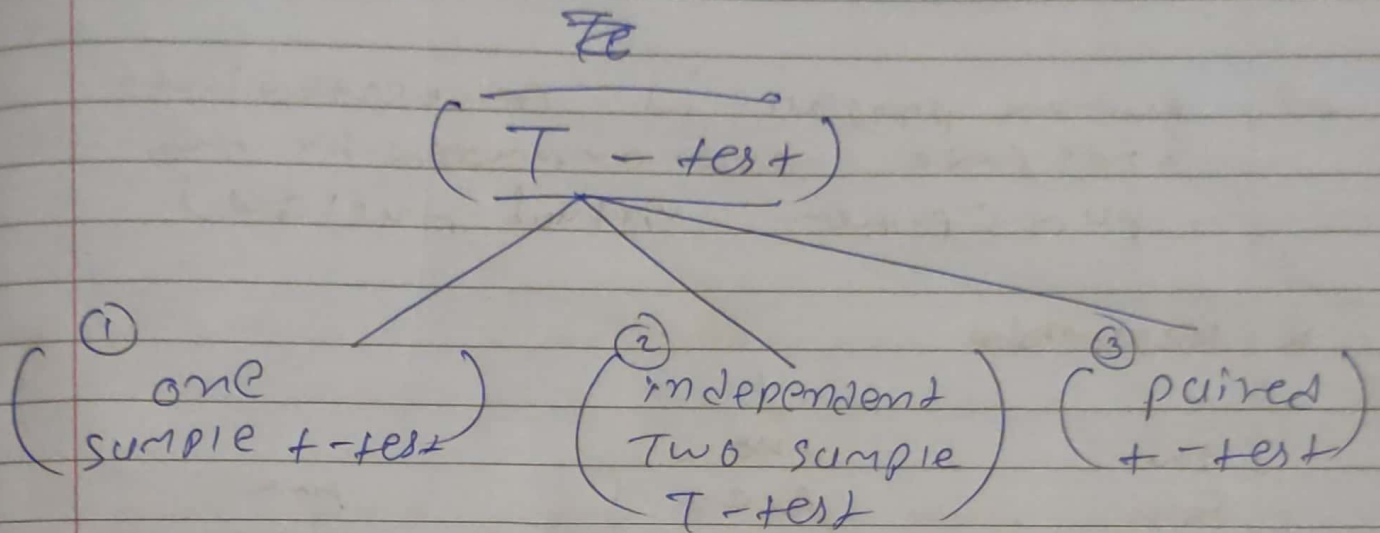 T - test
①
one
sample t-test
②
independent
Two sample
T-test
③
paired
t-test